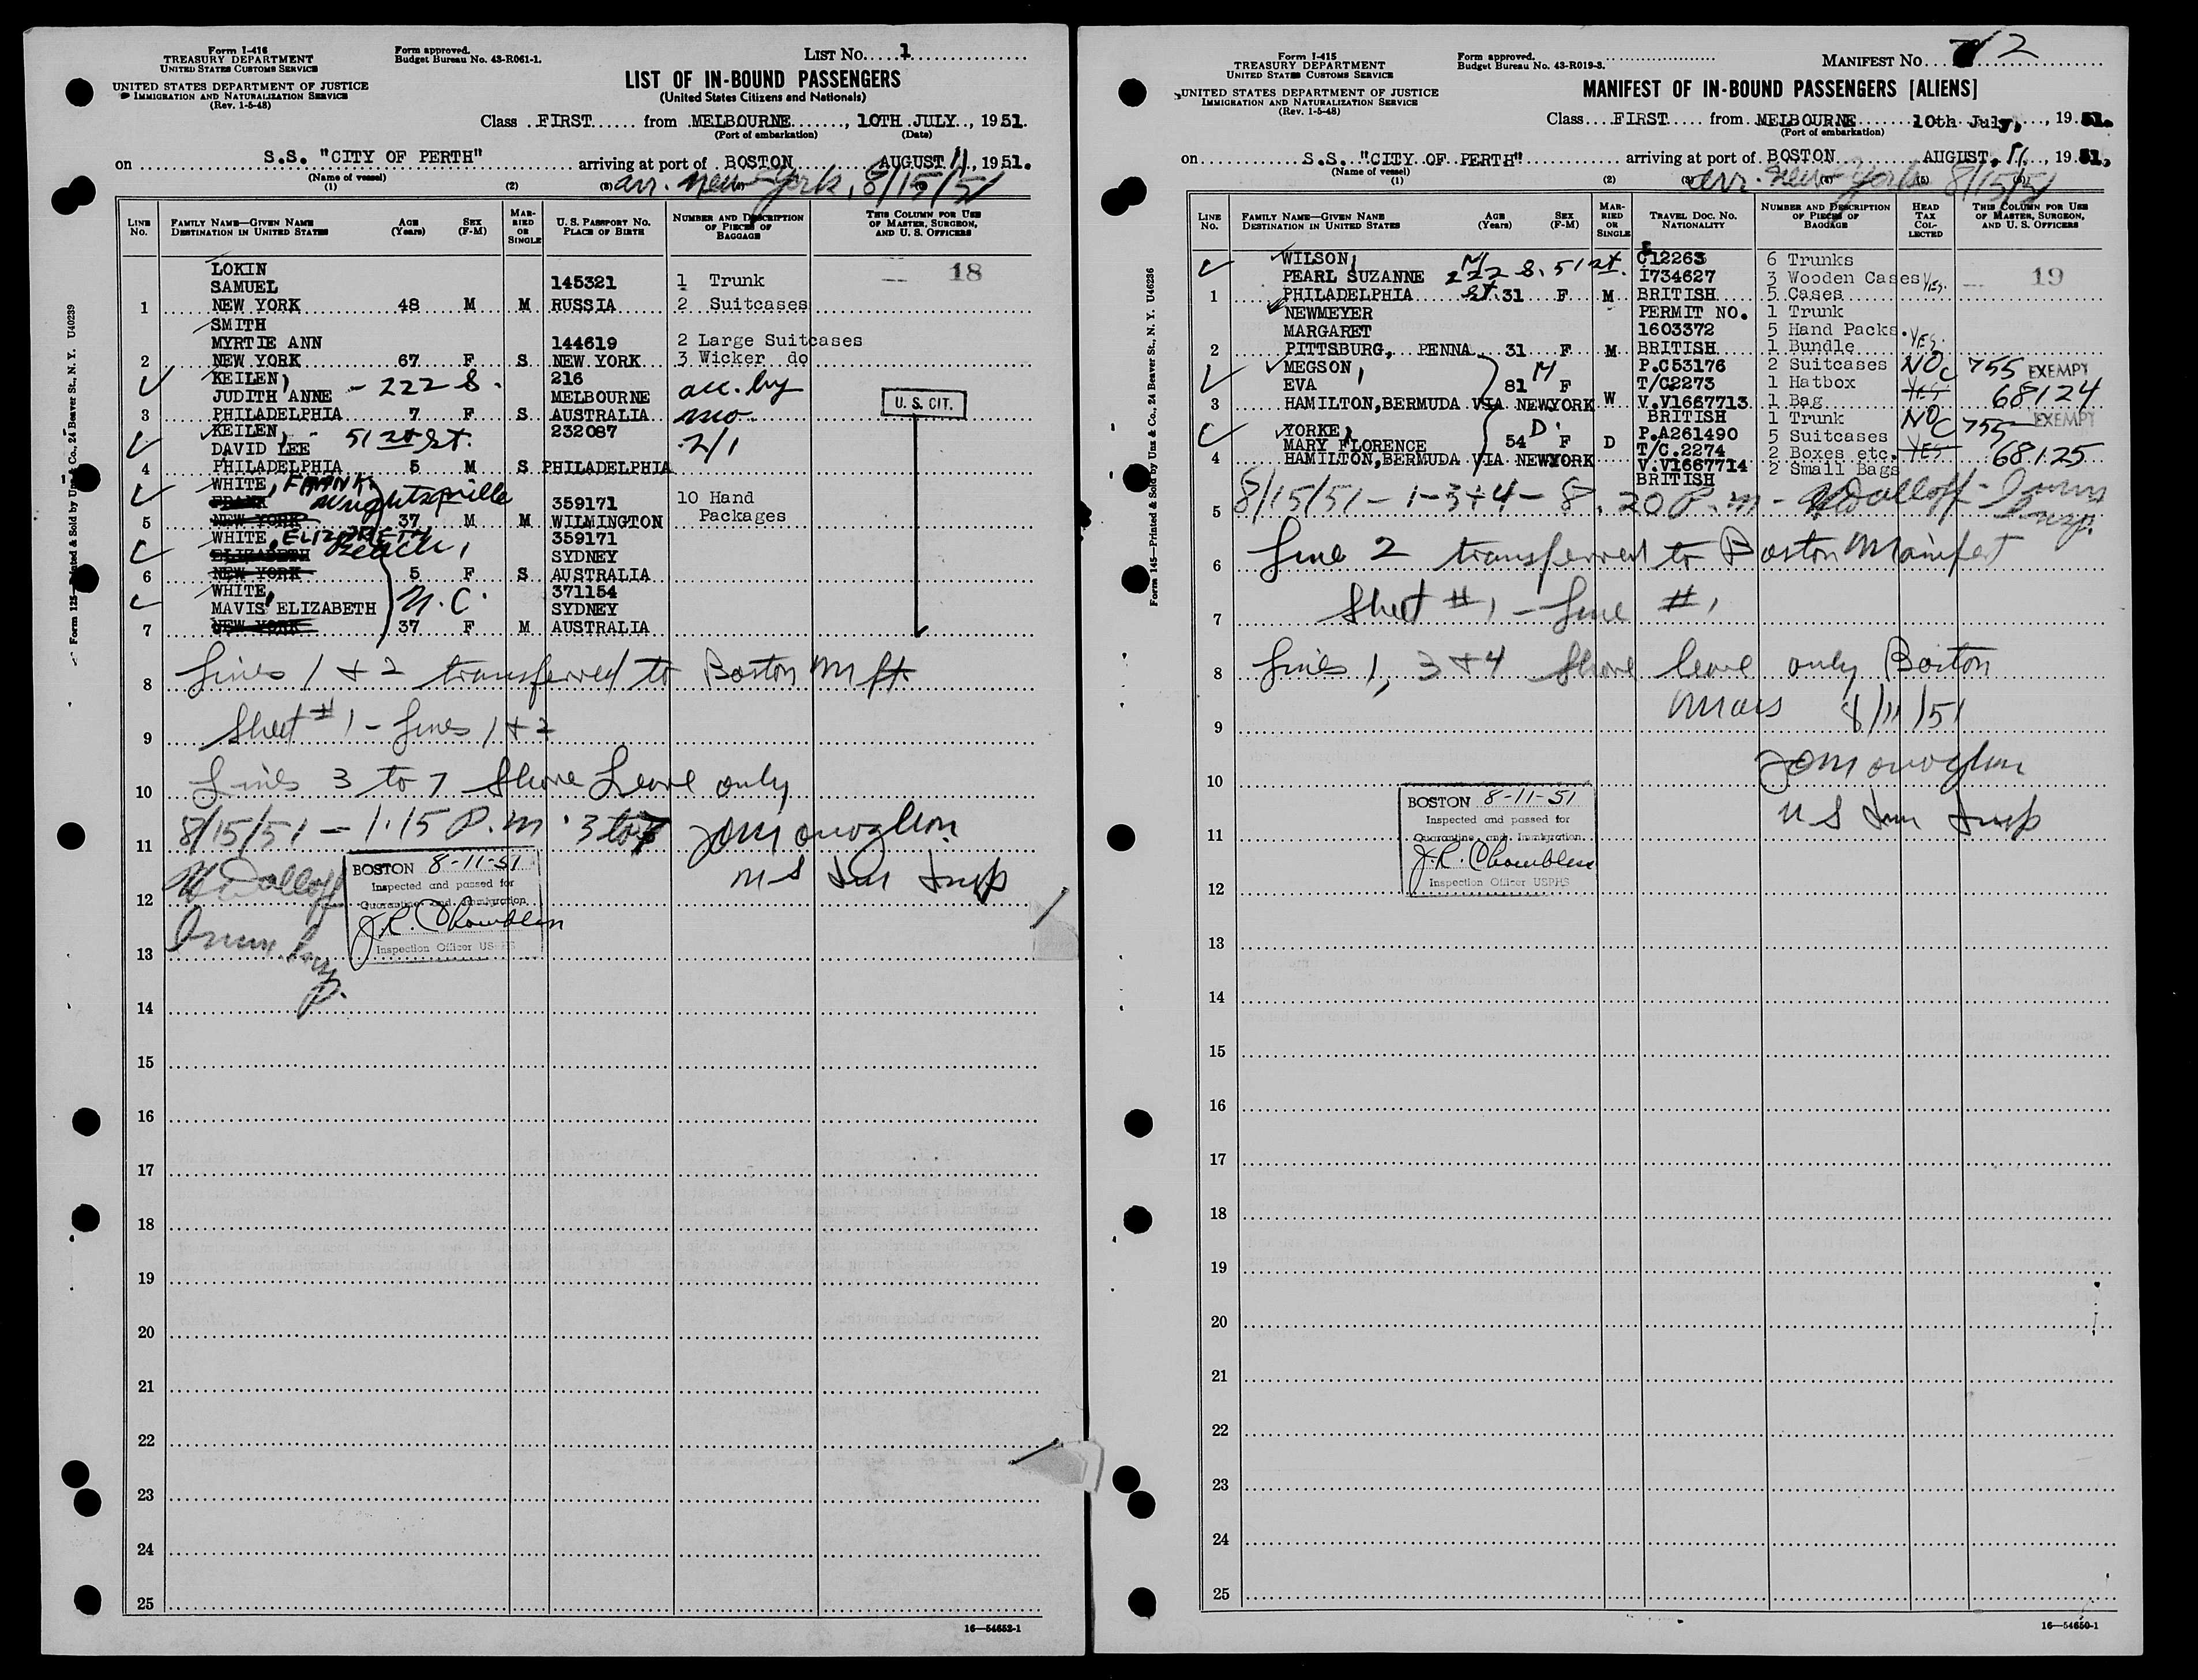 Form I-416
TREASURY DEPARTMENT
UNITED STATES CUSTOMS SERVICE
UNITED STATES DEPARTMENT OF JUSTICE
IMMIGRATION AND NATURALIZATION SERVICE
(Rev. 1-5-48)
Form approved.
Budget Bureau No. 43-R061-1.
LIST No. 1
LIST OF IN-BOUND PASSENGERS
(United States Citizens and Nationals)
Class FIRST from MELBOURNE, 10TH JULY, 1951.
(Port of embarkation) (Date)
on S.S. "CITY OF PERTH" arriving at port of BOSTON AUGUST 11, 1951.
(Name of vessel)
arr. New York, 8/15/51
(1) (2) (3)
LINE No. FAMILY NAME—GIVEN NAME DESTINATION IN UNITED STATES AGE (Years) SEX (F-M) MARRIED OR SINGLE U. S. PASSPORT NO. PLACE OF BIRTH NUMBER AND DESCRIPTION OF PIECES OF BAGGAGE THIS COLUMN FOR USE OF MASTER, SURGEON, AND U. S. OFFICERS
LOKIN 18
SAMUEL 145321 1 Trunk
1 NEW YORK 48 M M RUSSIA 2 Suitcases
SMITH
MYRTIE ANN 144619 2 Large Suitcases
2 NEW YORK 67 F S NEW YORK 3 Wicker do
KEILEN, - 222 S. 216 acc. by
JUDITH ANNE MELBOURNE U. S. CIT.
3 PHILADELPHIA 7 F S AUSTRALIA mo
KEILEN, 51 st St. 232087 2/1
DAVID LEE
4 PHILADELPHIA 5 M S PHILADELPHIA
WHITE, FRANK Wrightsville
FRANK 359171 10 Hand
5 NEW YORK 37 M M WILMINGTON Packages
WHITE, ELIZABETH Beach, 359171
ELIZABETH SYDNEY
6 NEW YORK 5 F S AUSTRALIA
WHITE, N.C. 371154
MAVIS ELIZABETH SYDNEY
7 NEW YORK 37 F M AUSTRALIA
8 Lines 1 + 2 transferred to Boston Mft.
9 Sheet #1 - Lines 1 + 2
10 Lines 3 to 7 Shore Leave only
11 8/15/51 - 1:15 P.m. 3 to 7
U S Imm Insp
BOSTON 8-11-51
Inspected and passed for
Quarantine and Immigration
J.R. Chamblin
Inspection Officer USPHS
12
Imm. Insp.
13
14
15
16
17
18
19
20
21
22
23
24
25
16—54652-1
Form 125—Printed & Sold by Unz & Co., 24 Beaver St., N. Y. U40239
Form I-415
TREASURY DEPARTMENT
UNITED STATES CUSTOMS SERVICE
UNITED STATES DEPARTMENT OF JUSTICE
IMMIGRATION AND NATURALIZATION SERVICE
(Rev. 1-5-48)
Form approved.
Budget Bureau No. 43-R019-3.
MANIFEST No. 2
MANIFEST OF IN-BOUND PASSENGERS [ALIENS]
Class FIRST from MELBOURNE 10th July, 1951.
(Port of embarkation)
on S.S. "CITY OF PERTH" arriving at port of BOSTON AUGUST, 11, 1951,
(Name of vessel)
arr. New York 8/15/51
(1) (2) (3) (4) (5) (6)
LINE No. FAMILY NAME—GIVEN NAME DESTINATION IN UNITED STATES AGE (Years) SEX (F-M) MARRIED OR SINGLE TRAVEL DOC. NO. NATIONALITY NUMBER AND DESCRIPTION OF PIECES OF BAGGAGE HEAD TAX COLLECTED THIS COLUMN FOR USE OF MASTER, SURGEON, AND U. S. OFFICERS
WILSON, M C12263 6 Trunks 19
PEARL SUZANNE 222 S. 51 st. I734627 3 Wooden Cases Yes.
1 PHILADELPHIA St. 31 F M BRITISH 5 Cases
NEWMEYER PERMIT NO. 1 Trunk
MARGARET 1603372 5 Hand Packs. Yes.
2 PITTSBURG, PENNA 31 F M BRITISH 1 Bundle
MEGSON, M P.C53176 2 Suitcases NO C 755 EXEMPT
EVA 81 F T/C2273 1 Hatbox YES 68124
3 HAMILTON,BERMUDA VIA NEWYORK W V.V1667713 1 Bag
BRITISH 1 Trunk NO C 755 EXEMPT
YORKE, D. P.A261490 5 Suitcases
MARY FLORENCE 54 F D T/C.2274 2 Boxes etc. YES 68125
4 HAMILTON,BERMUDA VIA NEWYORK V.V1667714 2 Small Bags
BRITISH
5 8/15/51 - 1-3+4 - 8.20 P.m - Imm Insp.
6 Line 2 transferred to Boston Manifest
7 Sheet #1 - Line #1
8 Lines 1, 3 + 4 Shore leave only Boston
9 Mass 8/11/51
10
U S Imm Insp
BOSTON 8-11-51
Inspected and passed for
Quarantine and Immigration
J.R. Chamblin
Inspection Officer USPHS
11
12
13
14
15
16
17
18
19
20
21
22
23
24
25
16—54650-1
Form 145—Printed & Sold by Unz & Co., 24 Beaver St., N. Y. U46236